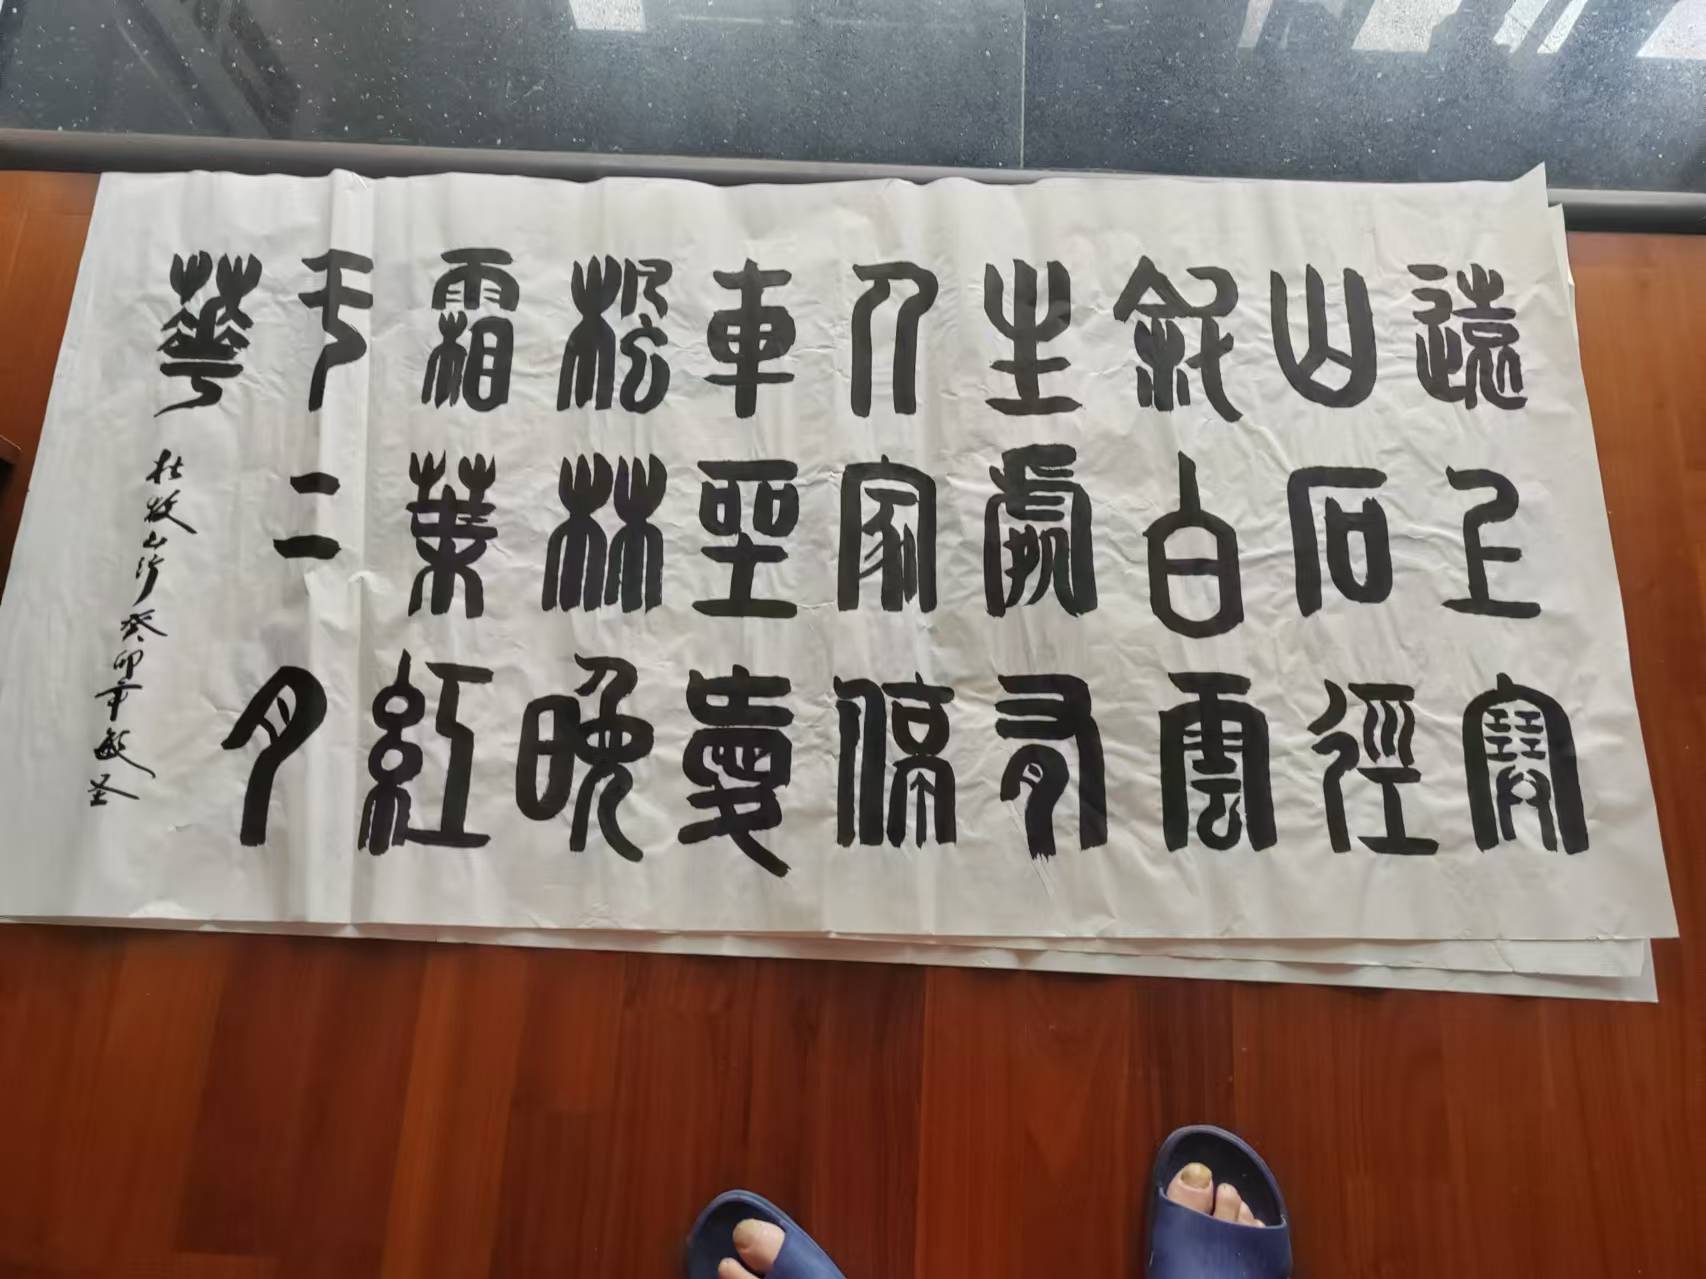 遠上寒
山石徑
斜白雲
生處有
人家停
車坐愛
楓林晚
霜葉紅
于二月
華
杜牧山行癸卯年敏圣